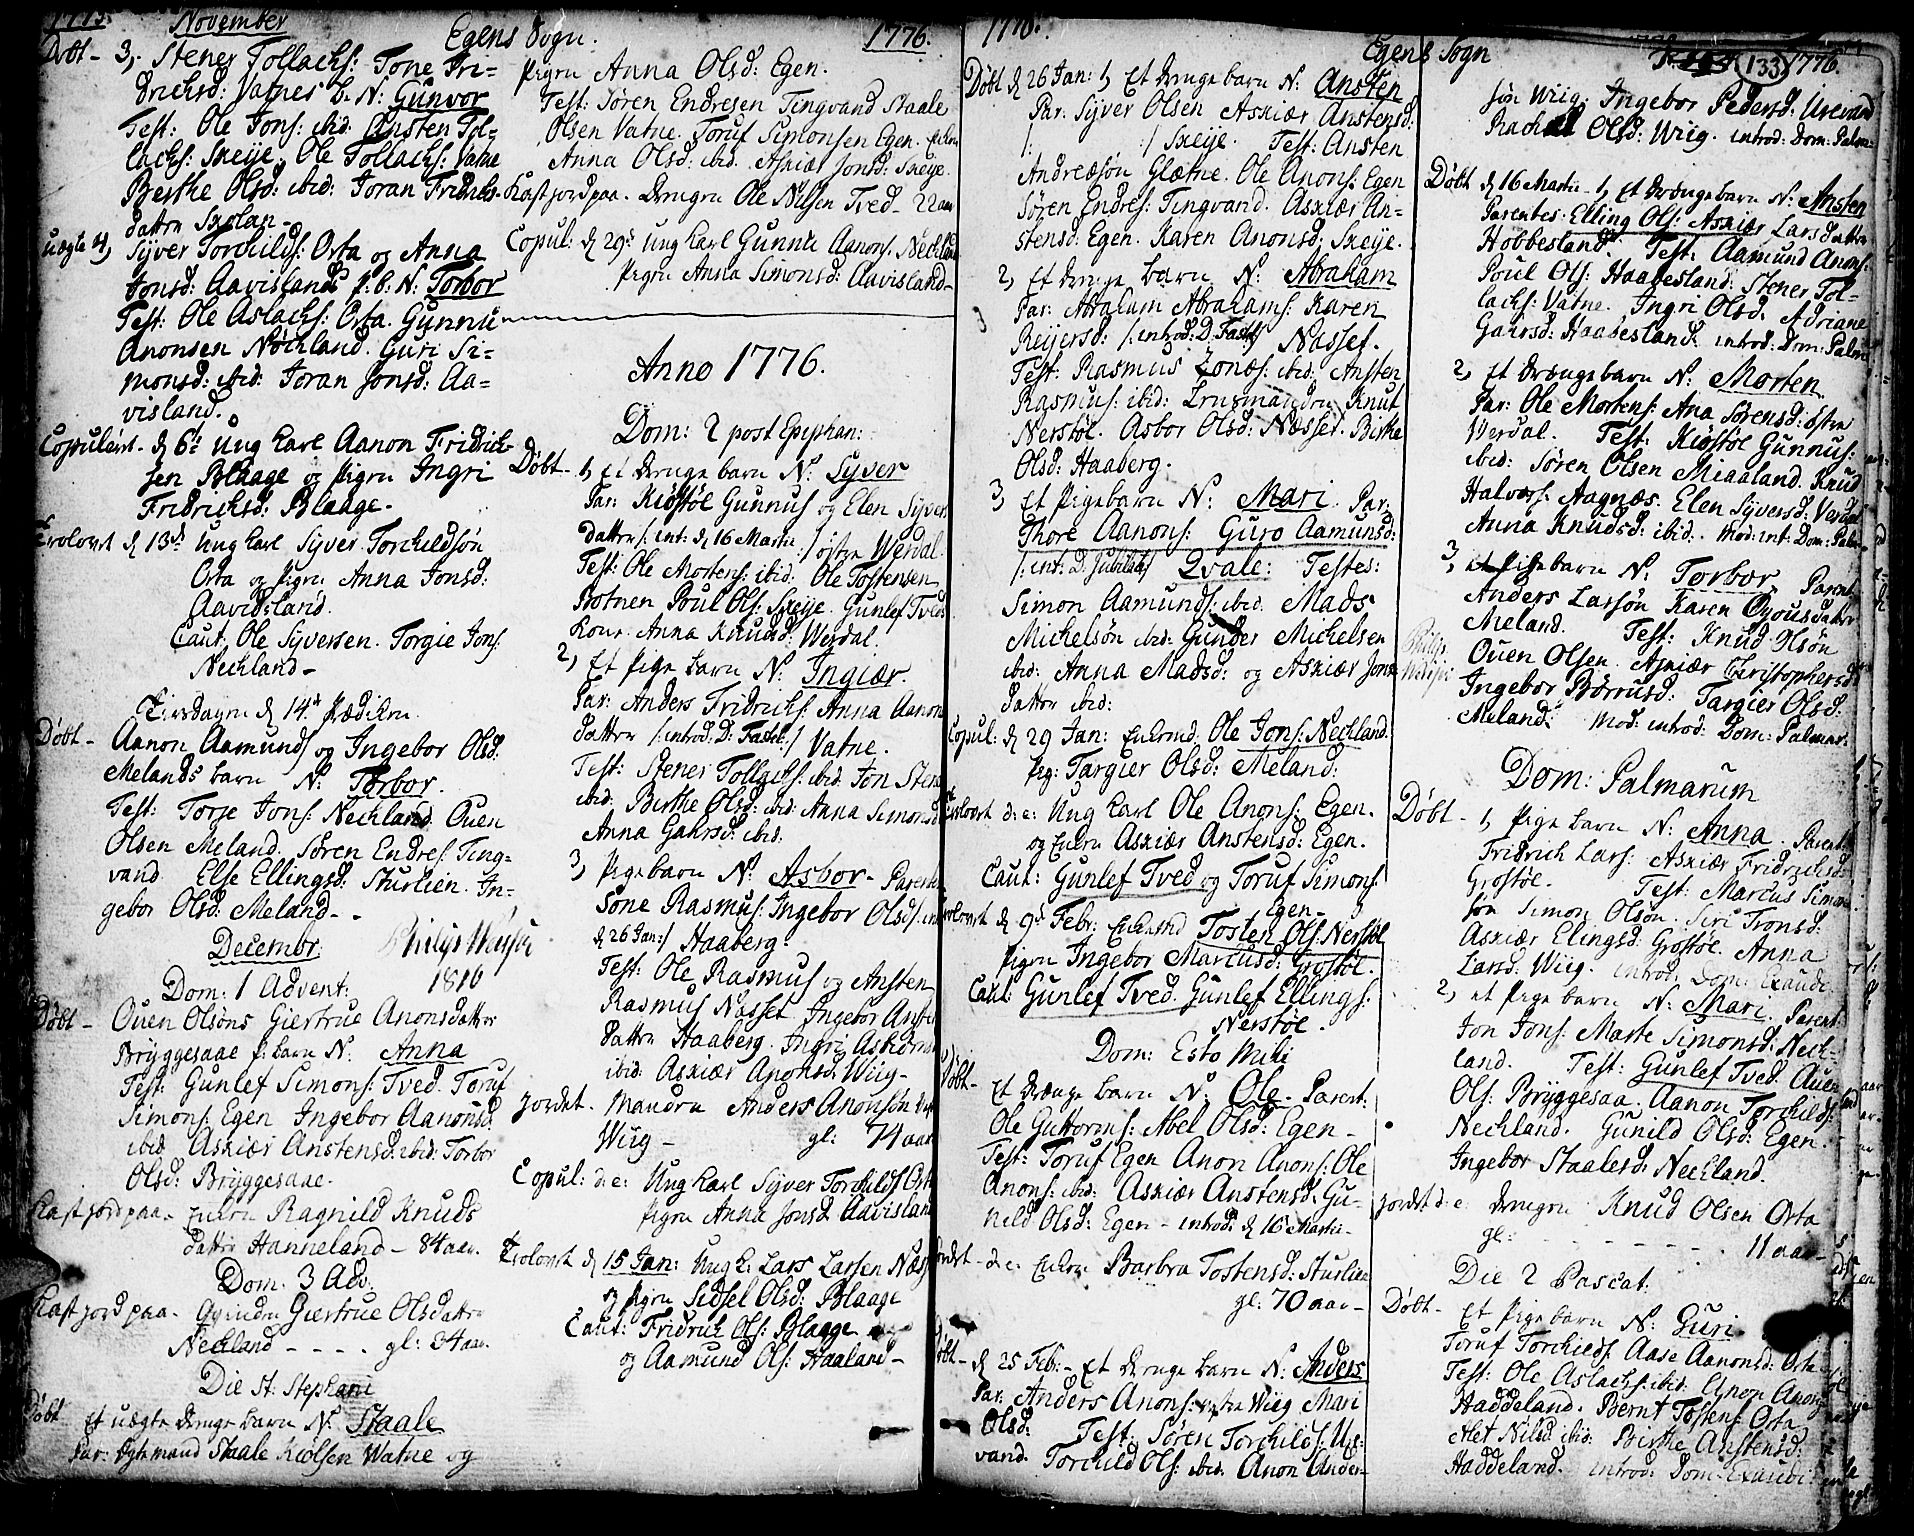 1775. November
Egens Sogn.
1776.
Døbt - 3, Stener Tollachs: Tone Fri=
drichsd: Vatnes b. N: Gunvor
Test: Ole Jons: ibid. Ansten Tol=
lachs: Skeije. Ole Tollachs: Vatne
Berthe Olsd: ibid: Joran Fridrichs-
dattr Skolan -
uægte 4, Syver Torchilds: Orta og Anna
Jonsd: Aavislands p. b. N: Torbor
Test: Ole Aslachs: Orta. Gunnu
Anonsen Nechland. Guri Si=
monsd: ibid: Joran Jonsd: Aa=
visland.
Copuleert. d 6te Ung karl Aanon Fridrich-
sen Blaage og pigen Ingri
Fridrichsd: Blaage.
Trolovet d 13de Ung karl Syver Torchildsøn
Orta og pigen Anna Jonsd:
Aavidsland.
Caut: Ole Syversen. Torgie Jons:
Nechland -
Tiirsdagen d 14de Prædiken.
Døbt - Aanon Aamunds og Ingebor Olsd:
Melands barn N: Torbor.
Test: Torje Jons: Nechland Ouen
Olsen Meland. Søren Endres: Ting=
vand Else Ellingsd: Sturlien. In=
gebor Olsd: Meland -
December.
1816
Dom: 1 Advent:
Døbt - Ouen Olsøns Giertrue Anonsdatter
Bryggesaae p: barn N: Anna
Test: Gunlef Simons: Tved. Toruf
Simons: Egen Ingebor Aanonsd:
ibid Askiær Anstensd: ibid: Torbor
Olsd: Bryggesaae.
Kast jord paa - Enken Ragnild Knuds
dattr Hanneland - 84 aar.
Dom: 3 Adv:
Kast jord paa - Qvinden Giertrue Olsdattr
Nechland - - - - gl: 34 aar.
Die St: Stephani
Døbt Et uægte drenge barn N: Staale
Par: Ægtemand Staale Kiølsen Watne og
pigen Anna Olsd: Egen.
Test: Søren Endresen Tingvand Staale
Olsen Vatne. Toruf Simonsen Egen.
Anna Olsd: ibid. Askiær Jonsd: Skeije.
Kast jord paa - Drengen Ole Nilsen Tved - 22 aar
Copul: d 29de Ung karl Gunnu Aanons. Nechland
Pigen Anna Simonsd: Aavisland -
Anno 1776.
Dom: 2 post Epiphan:
Døbt - 1, Et drenge barn N: Syver
Par: Kiøstøl Gunnus og Elen Syvers
Dattr /: int: d 16 Martii :/ østre Werdal.
Test: Ole Mortens: ibid: Ole Tostensen
Botnen Poul Ols: Skeije Gunlef Tveds
Kone: Anna Knudsd: Werdal.
2, Et Pige barn N: Ingiær.
Par: Anders Fridrichs: Anna Aanons
dattr /: introd: D: Fastel: :/ Vatne.
Test: Stener Tollachs: ibid: Jon Stens
ibid: Birthe Olsd: ibid: Anna Simonsd
Anna Gahrsd: ibid:
3, Pige barn N: Asbor - Parentes
Sone Rasmus: Ingebor Olsd /: int
d 26 Jan: :/ Haaberg.
Test: Ole Rasmus og Ansten
Rasmus Nasset Ingebor
Dattr Haaberg. Ingri
ibid: Askiær Anonsd: Wiig -
Jordet - Manden Anders Anonsøn
Wiig - gl: 74 aar
Copul: d: e: Ung karl Syver Torchilds Orta
pigen Anna Jonsd Aavisland
Trolovet d 15 Jan: Ung k. Lars Larsen Næss
og pigen Sidsel Olsd: Blaage
Caut: Fridrich Ols: Blaage
og Aamund Ols: Haaland -
1776.
Egens Sogn
133
1776.
Døbt d 26 Jan: 1, Et drenge barn N: Ansten
Par: Syver Olsen Askiær Anstensd:
/: :/ Skeije. Test: Ansten
Andreæsøn Glætne. Ole Anons: Egen
Søren Endres: Tingvand. Askiær An=
stensd: Egen. Karen Anonsd: Skeije.
2, Et drenge barn N: Abraham
Par: Abraham Abrahams: Karen
Reijersd: /: introd: D. Fast: :/ Nasset.
Test: Rasmus Zonæs: ibid: Ansten
Rasmus: ibid: Knut
Nerstøl. Asbor Olsd: Næsset. Birthe
Olsd: Haaberg.
3, Et Pigebarn N: Mari. Par:
Thore Aanons: Guro Aamunsd:
/: int: D. Jubilate :/ Qvale: Testes:
Simon Aamunds: ibid. Mads
Michelsøn ibid: Gunder Michelsen
ibid: Anna Madsd: og Askiær Jons
dattr ibid:
Copul: d 29 Jan: Enkemd. Ole Jons: Nechland.
pig: Targier Olsd: Meland.
Trolovet d: e: Ung karl Ole Anons: Egen.
og Enken Askiær Anstensd: Egen.
Caut: Gunlef Tved og Toruf Simons:
Egen -
Trolovet d 9de Febr: Enkemd Tosten Ols: Nerstøl
pigen Ingebor Marcusd: Grostøl.
Caut: Gunlef Tved. Gunlef Ellings:
Nerstøl.
Dom: Esto Mihi
Døbt - Et drænge barn N: Ole. Parent:
Ole Guttorms: Abel Olsd: Egen -
Test: Toruf Egen Anon Anons: Ole
Anons: ibid: Askiær Anstensd: Gu-
nild Olsd: Egen - introd: d 16 Martii -
Jordet - d: e: Enken Barbra Tostensd: Sturlien
gl: 70 aar -
Døbt - d 25 Feb: - Et drenge barn N: Anders
Par: Anders Anons: Wiig Mari
Olsd: Test: Søren Torchilds: Ure:
vand. Torchild Ols: ibid. Anon Ander-
søn Wiig. Ingebor Pedersd: Urevand
Rachel Olsd: Wiig. introd: Dom: Palm:
Døbt d 16 Martii - 1, Et drængebarn N: Ansten
Parentes. Elling Ols: Askiær Larsdattr
Hobbesland. Test: Aamund Anons:
Poul Ols: Haabesland: Stener Tol=
lachs: Vatne. Ingri Olsd: Adriane
Gahrsd: Haabesland. introd: Dom: Palm:
2, Et drængebarn N: Morten
Par: Ole Mortens: Ana Sørensd: østre
Verdal. Test: Kiøstøl Gunnus:
ibid: Søren Olsen Miaaland. Knud
Halvors: Aagnæs. Elen Syversd: Verdal
Anna Knudsd: ibid: Mod: int: Dom: Palm:
3, et pige barn N: Torbor Parent:
Anders Larsøn Karen Ogousdattr
Meland. Test: Knud Olsøn
Ouen Olsen. Askiær Christophersd:
Ingebor Børrusd: Targier Olsd:
Meland. Mod: introd: Dom: Palmar:
Dom: Palmarum
Døbt - 1, Pige barn N: Anna Parent:
Fridrich Lars: Askiær Fridrichsd:
Grostøl. Test: Marcus Simon
søn Simon Olsøn. Siri Tronsd:
Askiær Elingsd: Grostøl. Anna
Larsd: Wiig. introd: Dom: Exaudi
2, et pige barn N: Mari. Parent:
Jon Jons: Marte Simonsd: Nech-
land. Test: Gunlef Tved. Auen
Ols: Bryggesaa. Aanon Torchilds:
Nechland. Gunild Olsd: Egen.
Ingebor Staalesd: Nechland.
Jordet d: e: drengen Knud Olsen Orta
gl: - - - - - - 11 aar -
Die 2 Pascat:
Døbt - Et Pige barn N: Guri.
Toruf Torchilds. Aase Aanonsd: Orta
Test: Ole Aslachs: ibid: Anon Anons
Haddeland. Bernt Tostens: Orta
Alet Nilsd ibid: Birthe Anstensd:
Haddeland. introd: Dom: Exaudi: